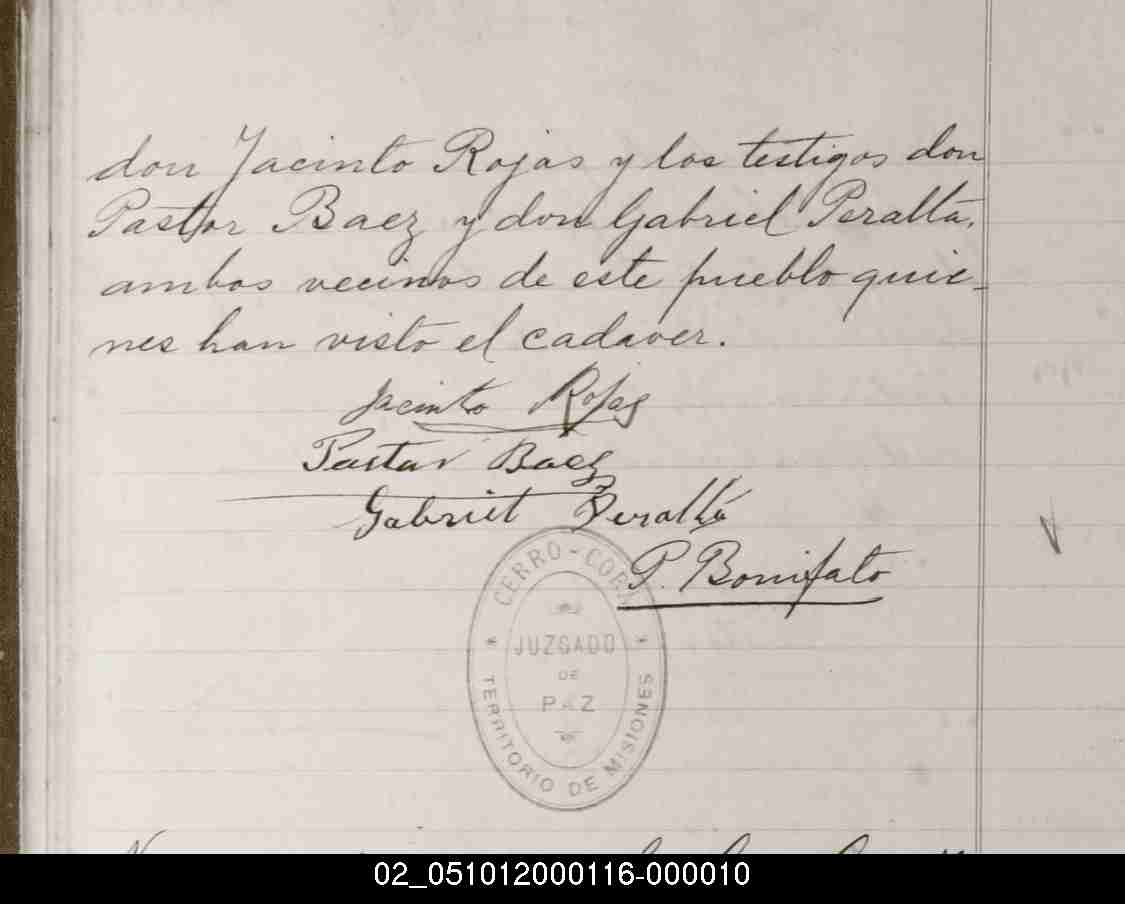 don Jacinto Rojas y los testigos don
Pastor Baez y don Gabriel Peralta,
ambos vecinos de este pueblo quie-
nes han visto el cadaver.
Jacinto Rojas
Pastor Baez
Gabriel Peralta
P. Bonifato
CERRO-CORA
JUZGADO
DE
PAZ
TERRITORIO DE MISIONES
02_051012000116-000010